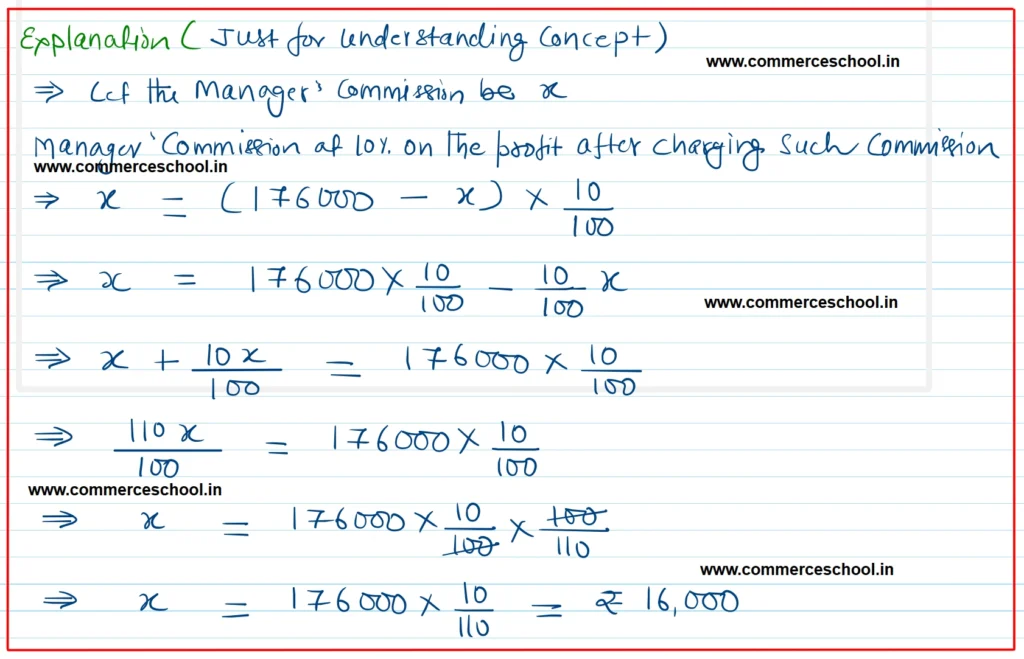 Explanation ( Just for understanding Concept )
www.commerceschool.in
⇒ Let the Manager's Commission be x
Manager's Commission at 10% on the profit after charging such Commission
www.commerceschool.in
⇒ x = (176000 - x) × 10/100
⇒ x = 176000 × 10/100 - 10/100 x
www.commerceschool.in
⇒ x + 10x/100 = 176000 × 10/100
⇒ 110x/100 = 176000 × 10/100
www.commerceschool.in
⇒ x = 176000 × 10/100 × 100/110
www.commerceschool.in
⇒ x = 176000 × 10/110 = ₹ 16,000